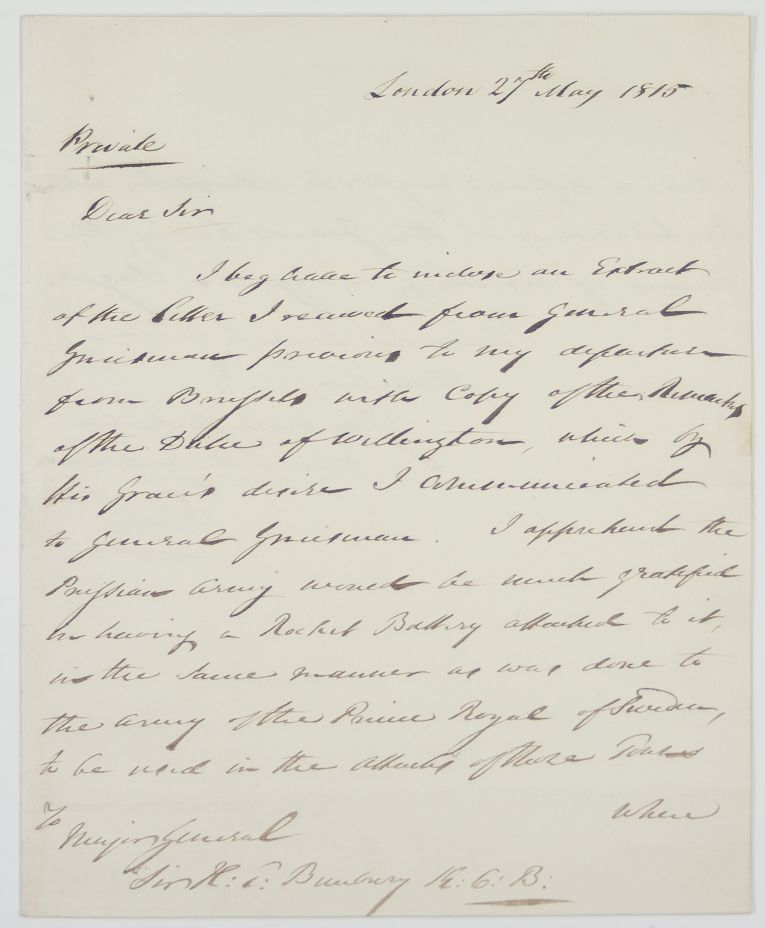 London 27th May 1815
Private
Dear Sir
I beg leave to inclose an Extract
of the letter I received from General
Gneisenau previous to my departure
from Brussels with Copy of the Remarks
of the Duke of Wellington, which by
His Grace's desire I communicated
to General Gneisenau. I apprehend the
Prussian Army would be much gratified
in having a Rocket Battery attached to it,
in the same manner as was done to
the Army of the Prince Royal of Sweden,
to be used in the attacks of those Towns
where
To
Major General
Sir H: E: Bunbury K: C: B: